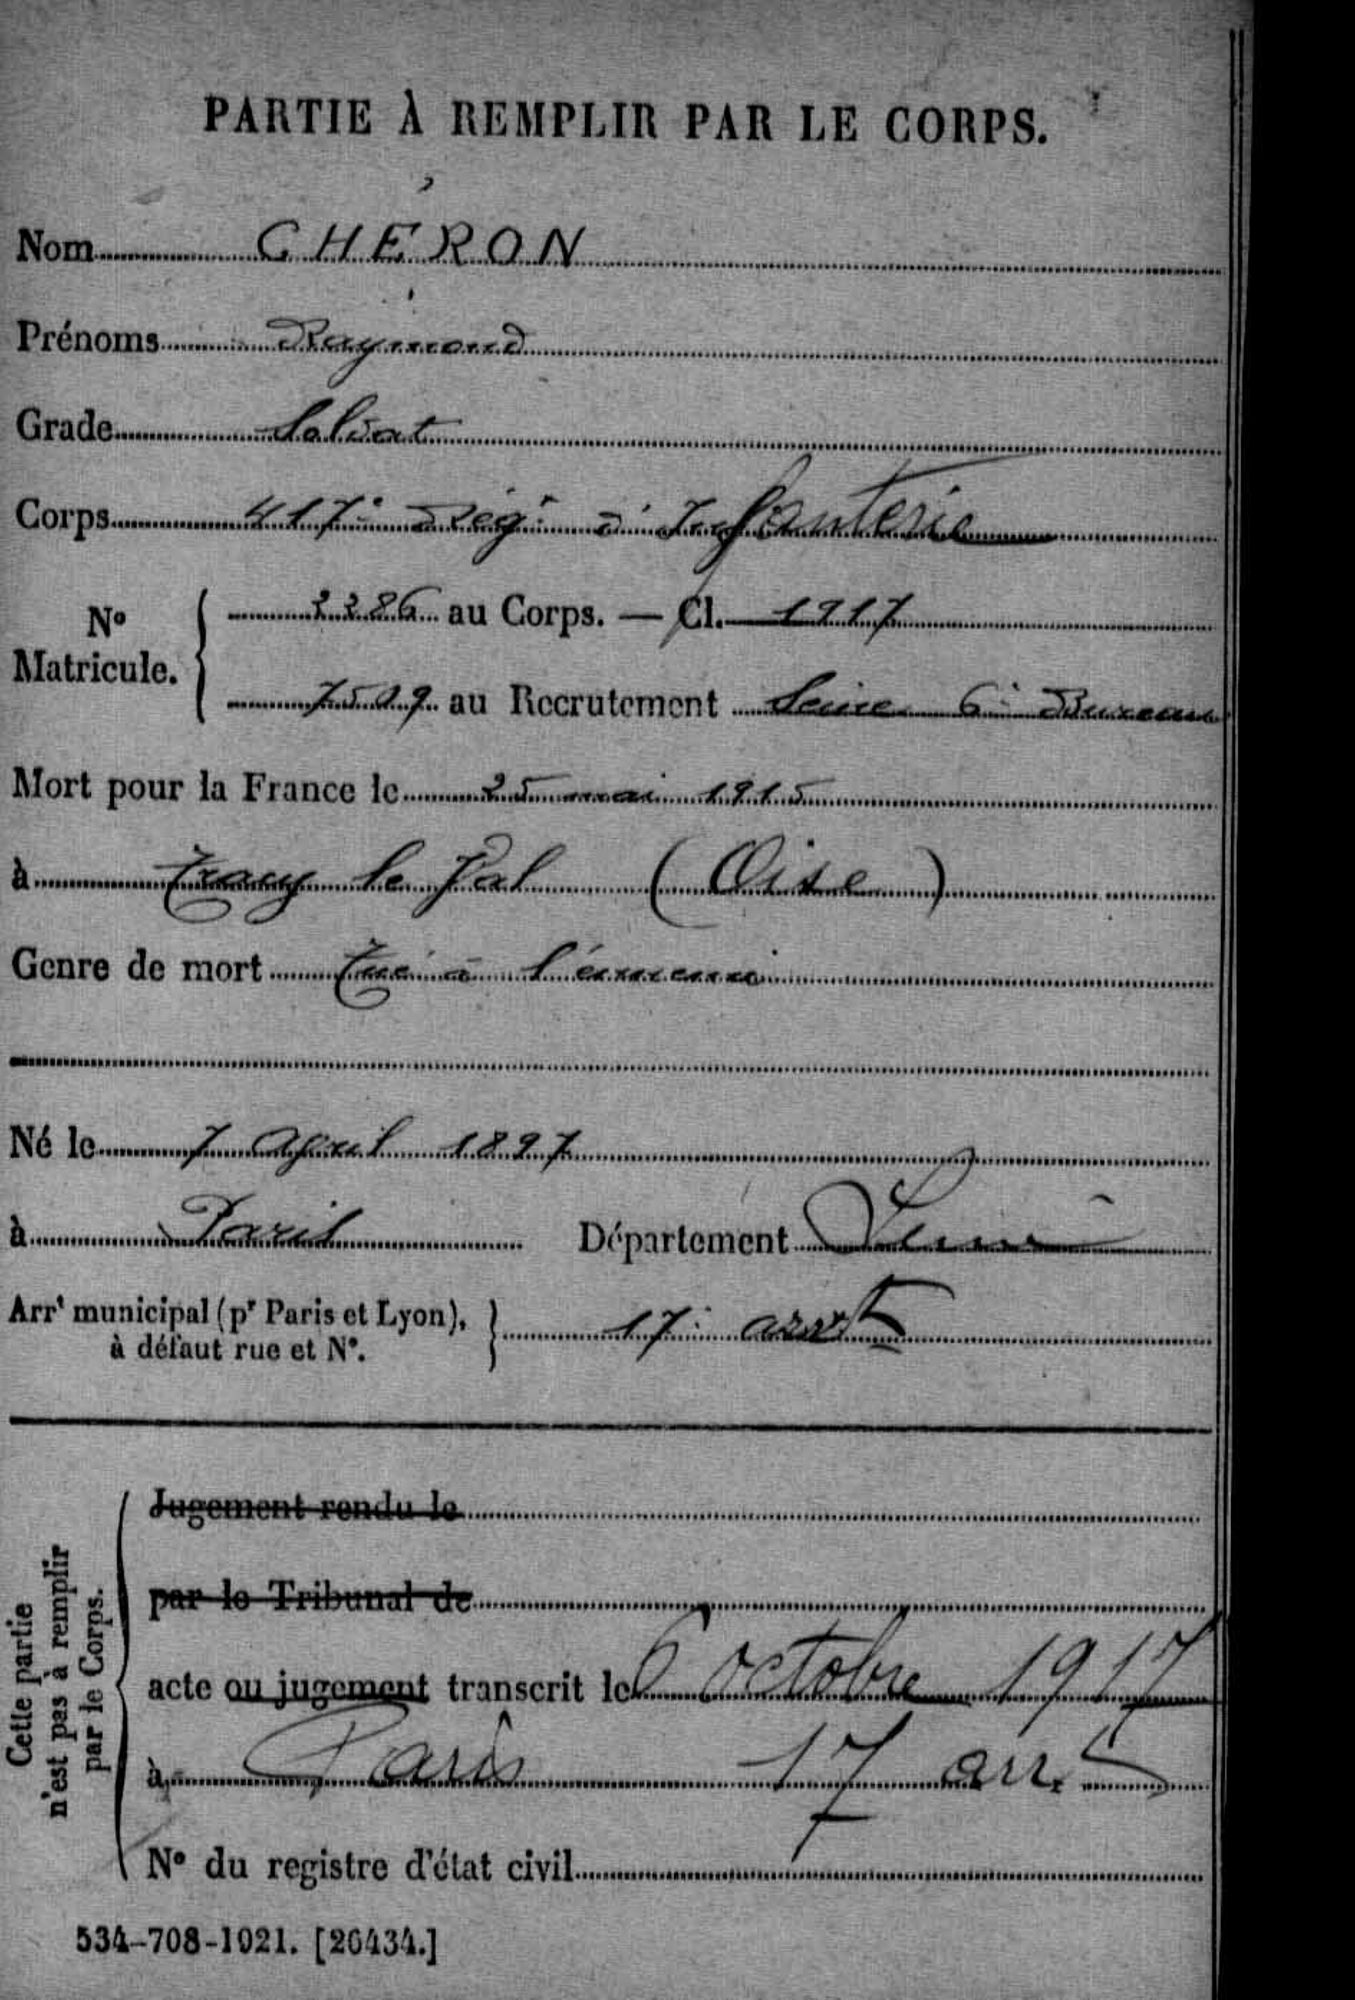 PARTIE À REMPLIR PAR LE CORPS.
Nom CHÉRON
Prénoms Raymond
Grade Soldat
Corps 417e Rég. d'Infanterie
N° Matricule. 2286 au Corps. — Cl. 1917
7509 au Recrutement Seine 6e Bureau
Mort pour la France le 25 mai 1915
à Tracy le Val (Oise)
Genre de mort Tué à l'ennemi
Né le 7 April 1897
à Paris Département Seine
Arrt municipal (pr Paris et Lyon), à défaut rue et N°. 17e arrt
Cette partie n'est pas à remplir par le Corps.
Jugement rendu le
par le Tribunal de
acte ou jugement transcrit le 6 octobre 1917
à Paris 17 arrt
N° du registre d'état civil
534-708-1021. [26434.]